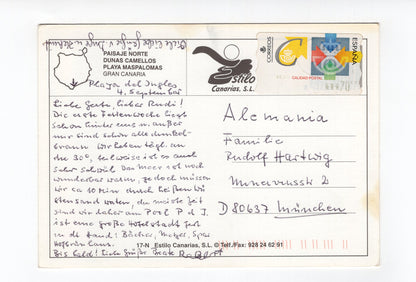 Viele liebe Grüße v.
PAISAJE NORTE
DUNAS CAMELLOS
PLAYA MASPALOMAS
GRAN CANARIA
Estilo
Canarias, S.L.
CORREOS
ESPAÑA
CALIDAD POSTAL
Playa del Ingles
4. September
Liebe Gerta, lieber Rudi!
Die erste Ferienwoche liegt
schon hinter uns u. außer
mir sind schon alle dunkel-
braun. Wir haben tägl. an
die 30°, teilweise ist es auch
sehr schwül. Das Meer ist noch
wunderbar warm, jedoch müssen
wir ca 10 Min durch heißen Wü-
stensand waten, die meiste Zeit
sind wir daher am Pool. P. d. I.
ist eine große Hotelstadt fest
in dt. Hand: Bäcker, Metzger, Spar
Hofbräuhaus.
Bis bald! Liebe Grüße Beate
Alemania
Familie
Rudolf Hartwig
D 80637 München
17-N Estilo Canarias, S.L. © Telf./Fax: 928 24 62 91